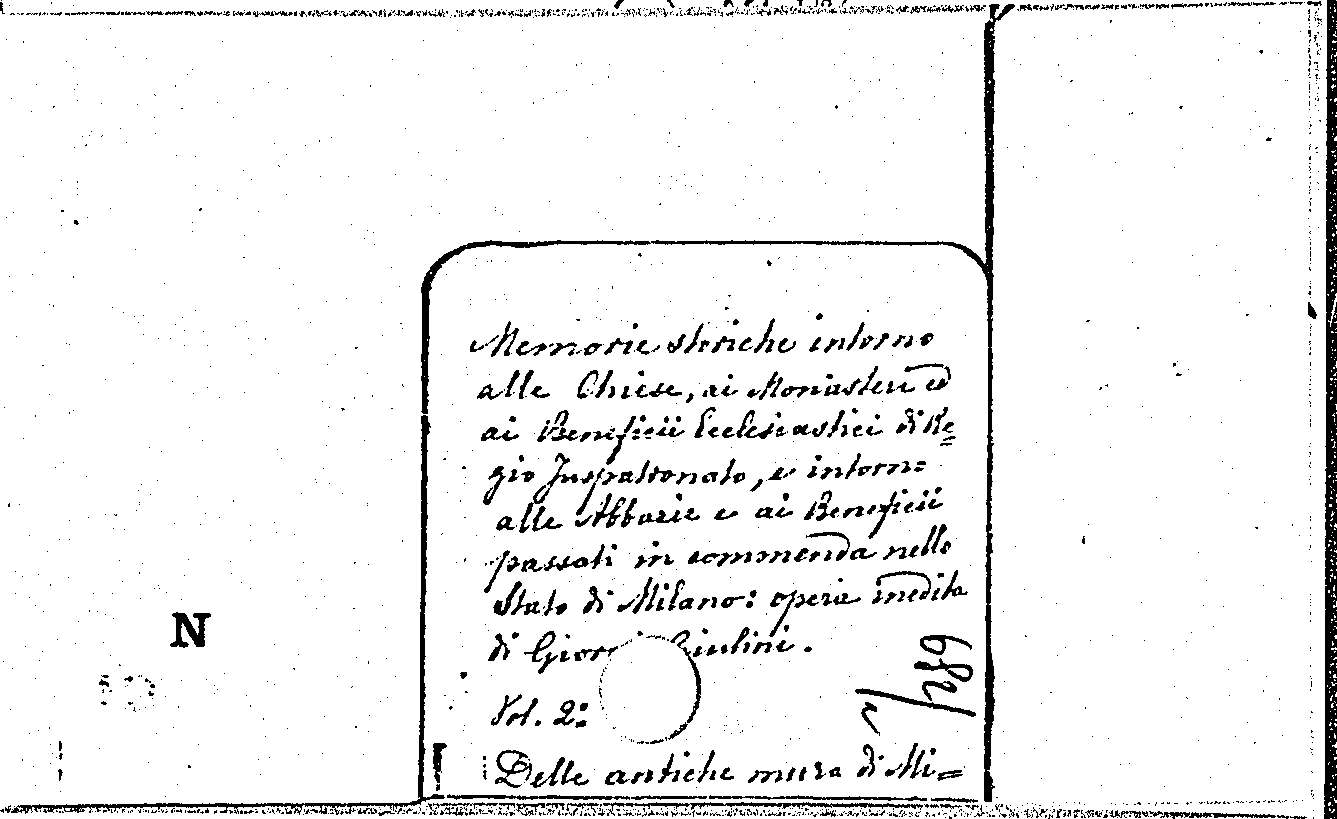 Memorie storiche intorno
alle Chiese, ai Monasteri ed
ai Beneficii Ecclesiastici di Re=
gio Juspatronato, e intorno
alle Abbazie e ai Beneficii
passati in commenda nello
Stato di Milano: opera inedita
di Giulini.
Vol. 2:
Delle antiche mura di Mi=
N